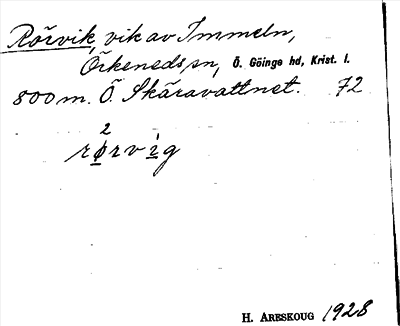 Rörvik, vik av Immeln,
Örkeneds sn, Ö. Göinge hd, Krist. l.
800 m. Ö. Skäravattnet. 72
2
rørvig
H. Areskoug 1928